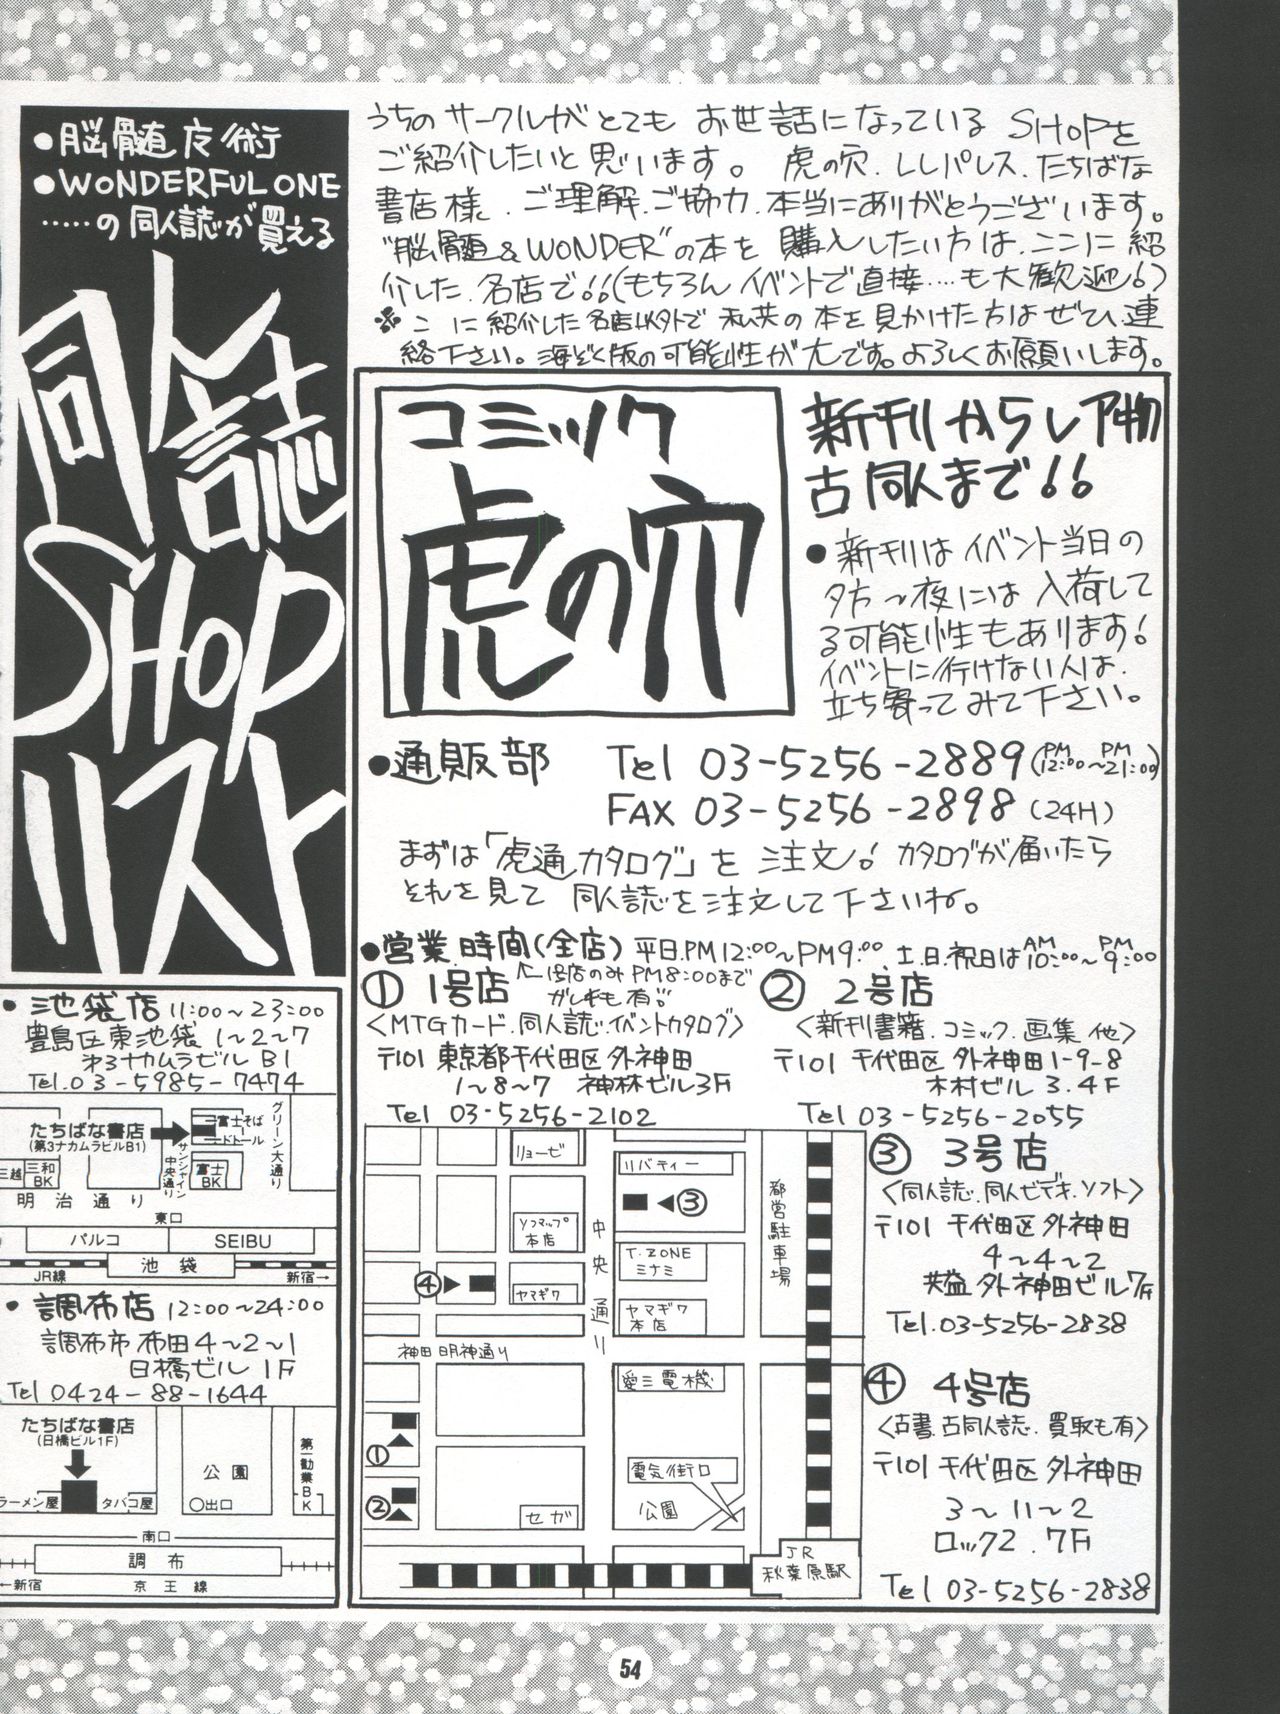 ●脳髄魔術
●WONDERFUL ONE
……の同人誌が買える
同人誌
SHOP
リスト
うちのサークルがとても お世話になっている SHOPを
ご紹介したいと思います。 虎の穴.LLパレス.たちばな
書店様.ご理解.ご協力.本当にありがとうございます。
"脳髄&WONDER"の本を 購入したい方は.ここに紹
介した.名店で!!(もちろん イベントで直接….も大歓迎!)
※ここに紹介した名店以外で 私共の本を見かけた方はぜひ.連
絡下さい。海ぞく版の可能性が大です。よろしくお願いします。
コミック
虎の穴
新刊からレア物
古同人まで!!
●新刊はイベント当日の
夕方〜夜には入荷して
る可能性もあります!
イベントに行けない人は.
立ち寄ってみて下さい。
●通販部 Tel 03-5256-2889(PM12:00〜PM21:00)
FAX 03-5256-2898(24H)
まずは「虎通カタログ」を注文! カタログが届いたら
それを見て 同人誌を注文して下さいね。
●営業時間(全店)平日.PM12:00〜PM9:00 土.日.祝日はAM10:00〜PM9:00
① 1号店
1号店のみPM8:00まで
〈MTGカード.同人誌.イベントカタログ〉
〒101 東京都千代田区外神田
1〜8〜7 神林ビル3F
Tel 03-5256-2102
② 2号店
〈新刊書籍.コミック.画集 他〉
〒101 千代田区 外神田1-9-8
木村ビル 3.4F
Tel 03-5256-2055
③ 3号店
〈同人誌.同人ビデオ.ソフト〉
〒101 千代田区外神田
4〜4〜2
共益外神田ビル7F
Tel.03-5256-2838
④ 4号店
〈古書.古同人誌.買取も有〉
〒101 千代田区 外神田
3〜11〜2
ロック2.7F
Tel 03-5256-2838
リョービ
リバティー
③
都営駐車場
ソフマップ
本店
中央通り
T.ZONE
ミナミ
④
ヤマギワ
ヤマギワ
本店
神田明神通り
愛三電機
①
電気街口
②
公園
セガ
JR
秋葉原駅
・池袋店 11:00〜23:00
豊島区東池袋1〜2〜7
第3ナカムラビルB1
Tel.03-5985-7474
たちばな書店
(第3ナカムラビルB1)
富士そば
ドトール
グリーン大通り
サンシャイン
中央通り
三越
三和
BK
富士
BK
明治通り
東口
パルコ
SEIBU
池袋
JR線
新宿→
・調布店 12:00〜24:00
調布市布田4〜2〜1
日橋ビル 1F
Tel 0424-88-1644
たちばな書店
(日橋ビル1F)
公園
第一勧業BK
ラーメン屋
タバコ屋
○出口
南口
調布
←新宿
京王線
54